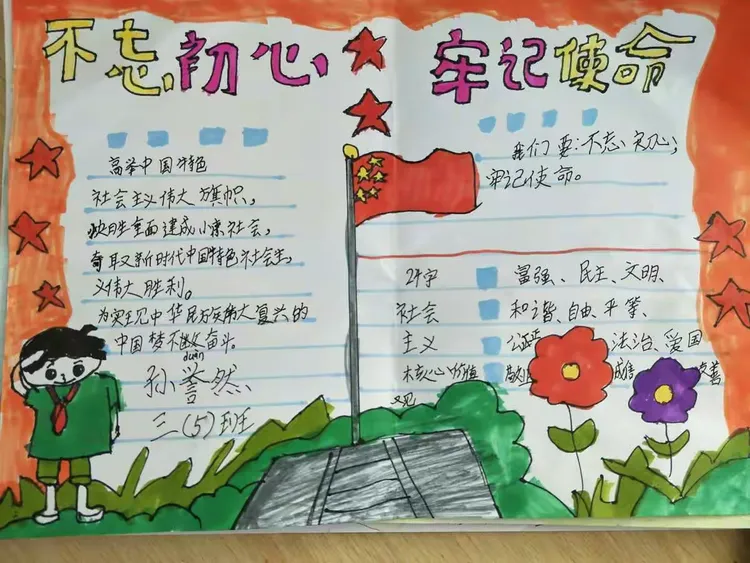 不忘初心 牢记使命
高举中国特色
社会主义伟大旗帜，
决胜全面建成小康社会，
夺取新时代中国特色社会主
义伟大胜利。
为实现中华民族伟大复兴的
duàn
中国梦不懈奋斗。
孙誉然
三（5）班
我们要：不忘初心；
牢记使命。
24字 富强、民主、文明、
社会 和谐、自由、平等、
主义 法治、爱国
核心价值 敬业 诚信 友善
观